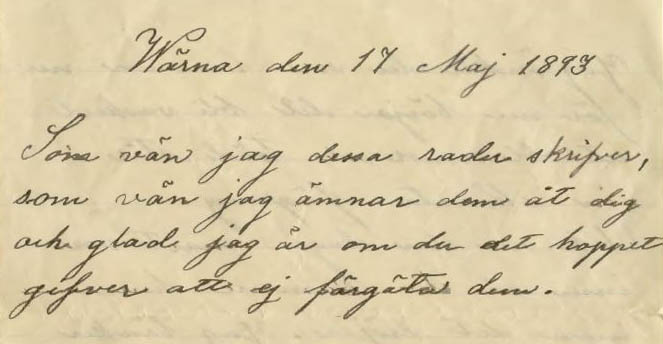 Wärna den 17 Maj 1893
Som vän jag dessa rader skrifver,
som vän jag ämnar dem åt dig
och glad jag är om du det hoppet
gifver att ej förgäta dem.